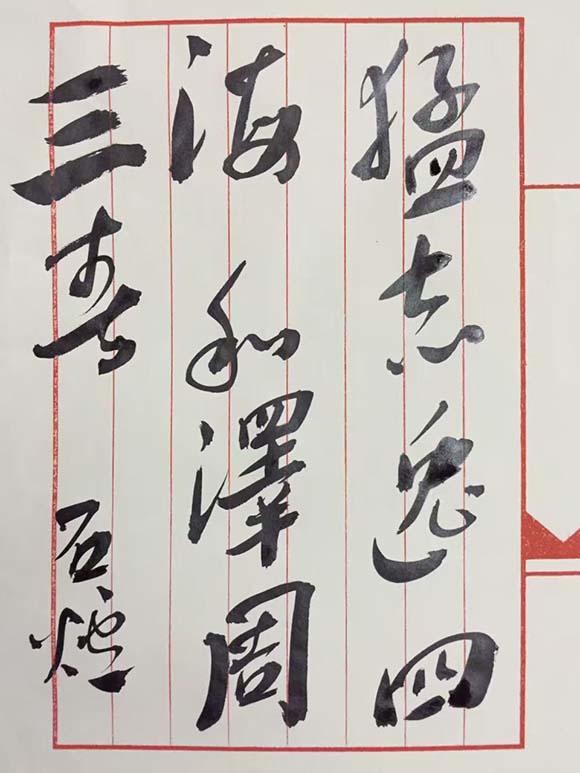 猛志逸四
海 和澤周
三春 石